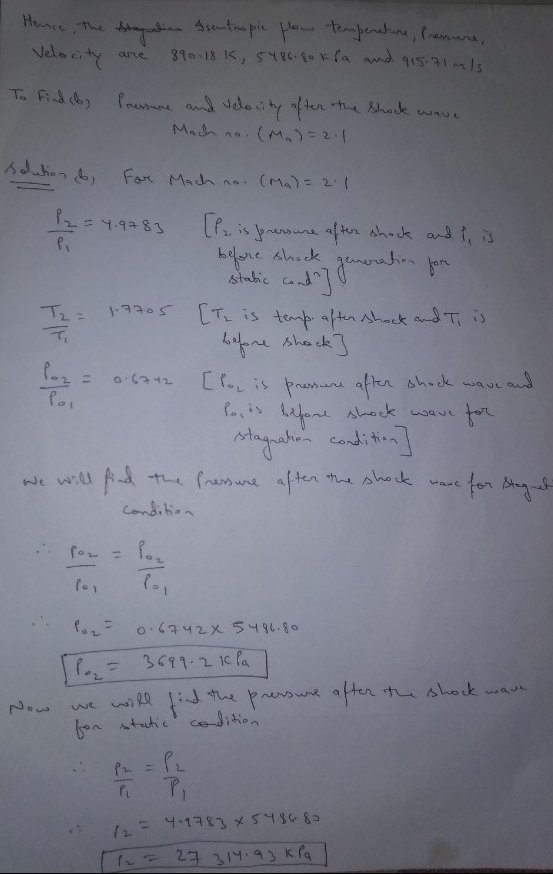 Hence, the Isentropic flow temperature, Pressure,
Velocity are 890.18 K, 5486.80 kPa and 915.71 m/s
To Find (b) Pressure and velocity after the shock wave
Mach no. (Ma) = 2.1
Solution (b) For Mach no. (Ma) = 2.1
P2/P1 = 4.9783 [P2 is pressure after shock and P1 is
before shock generation for
static condn]
T2/T1 = 1.7705 [T2 is temp. after shock and T1 is
before shock]
Po2/Po1 = 0.6742 [Po2 is pressure after shock wave and
Po1 is before shock wave for
stagnation condition]
We will find the Pressure after the shock wave for Stagnati
condition
∴ Po2/Po1 = Po2/Po1
∴ Po2 = 0.6742 x 5486.80
Po2 = 3699.2 kPa
Now we will find the pressure after the shock wave
for static condition
∴ P2/P1 = P2/P1
∴ P2 = 4.9783 x 5486.80
P2 = 27 314.93 kPa